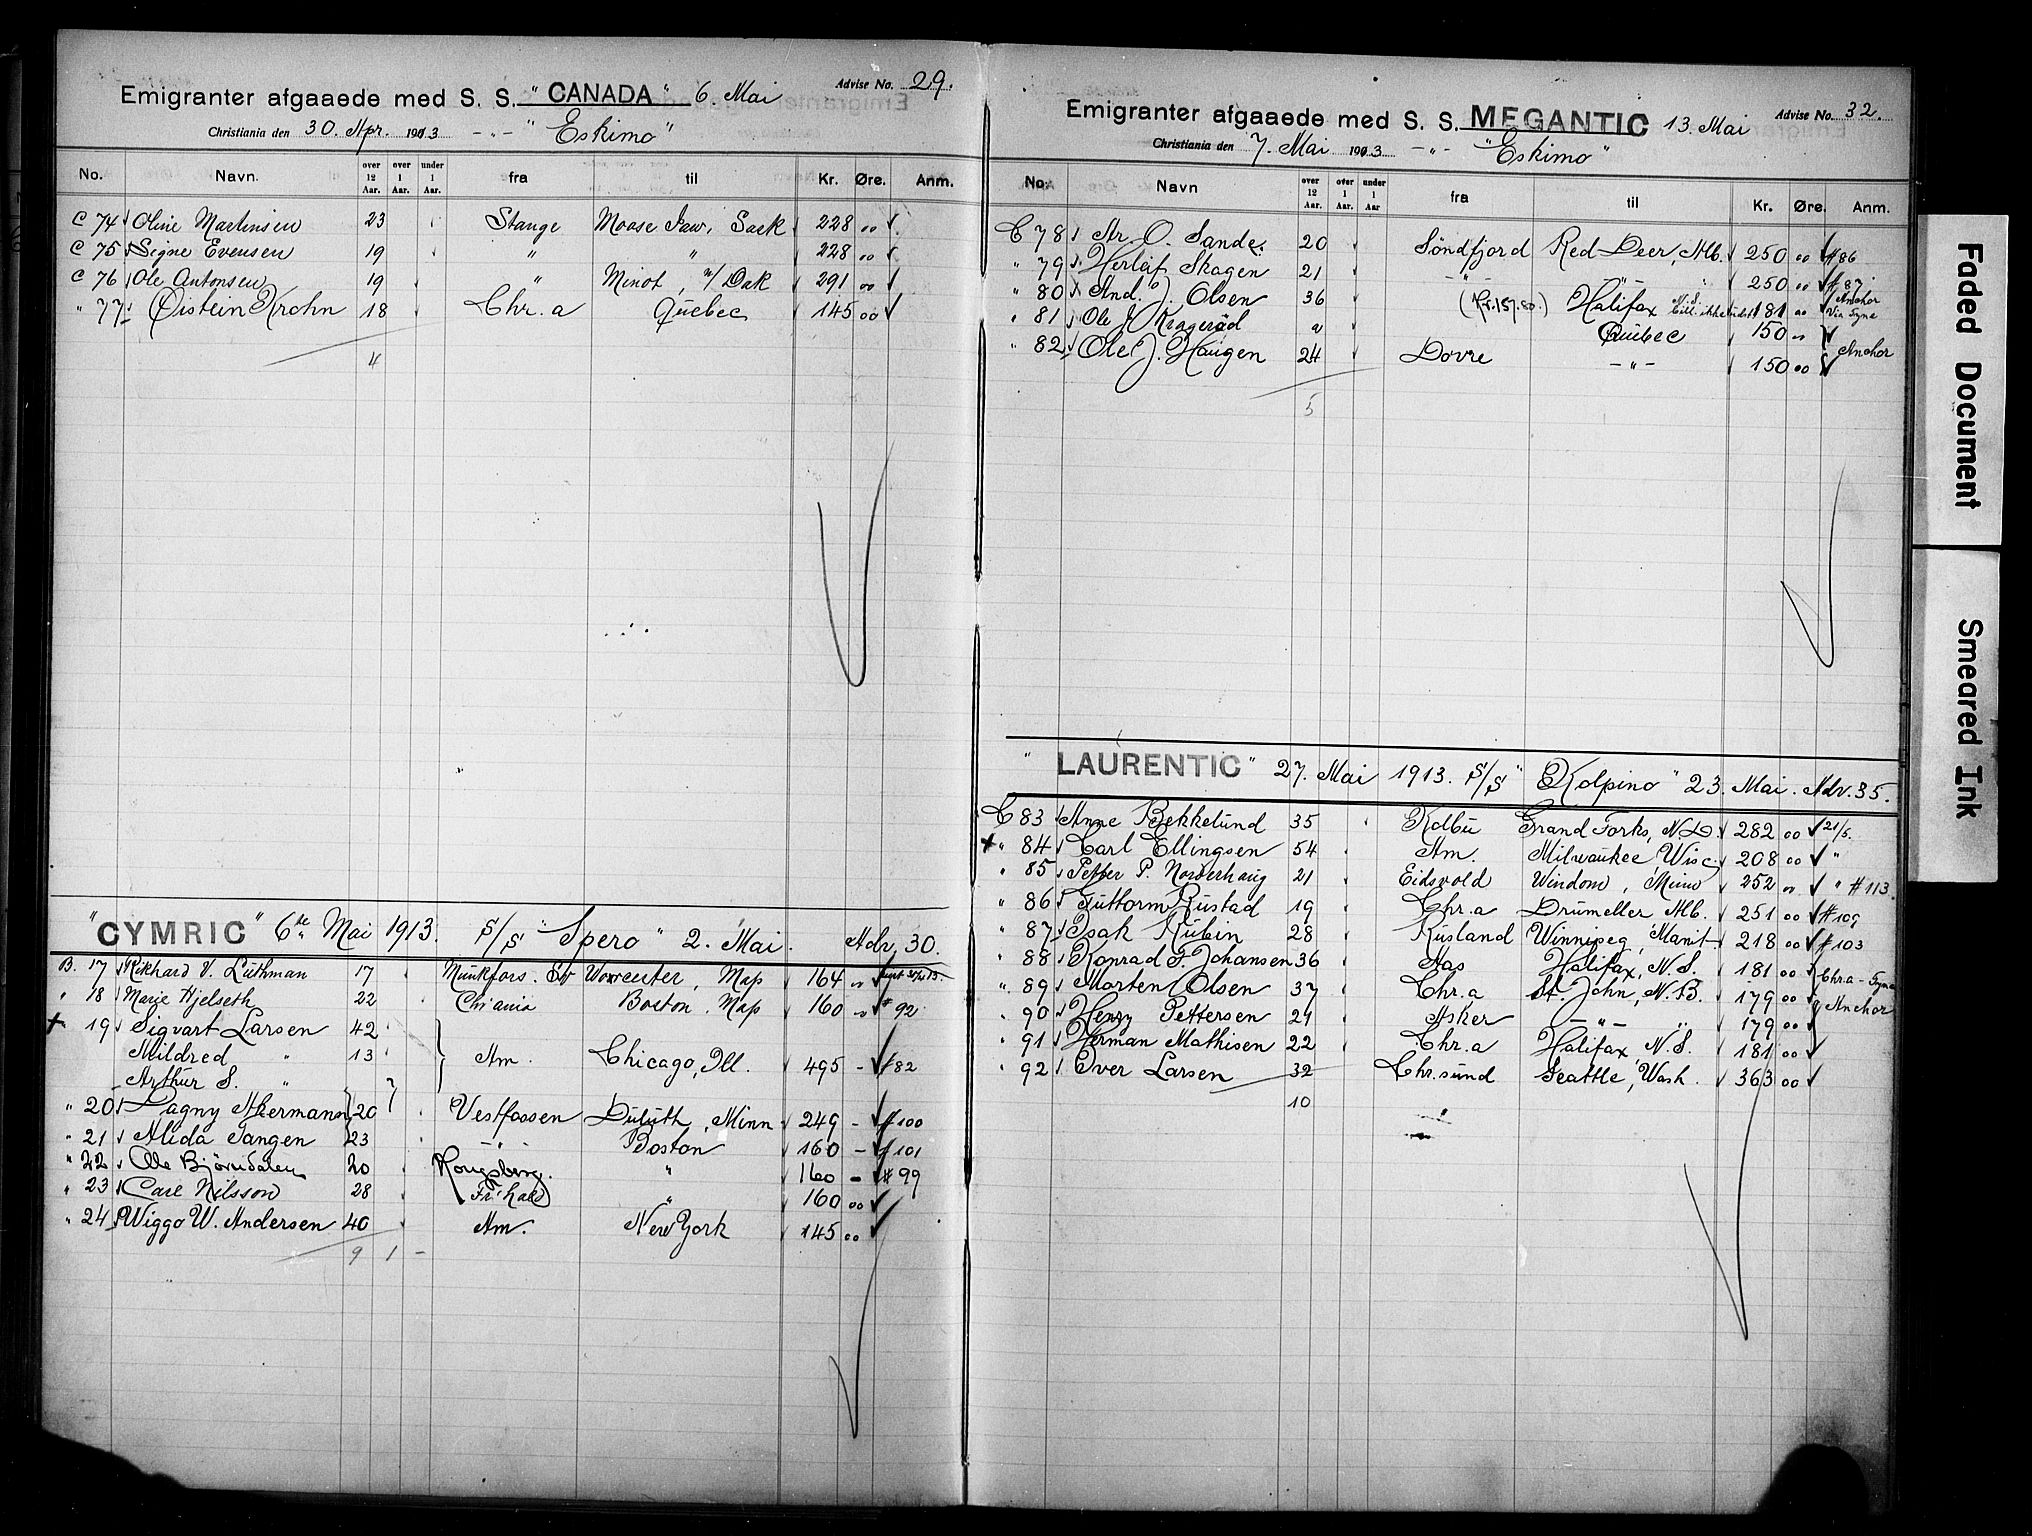 Emigranter afgaaede med S. S. "CANADA" 6. Mai Advise No. 29.
Christiania den 30. Apr. 1913 -"- "Eskimo"
No. Navn. over 12 Aar. over 1 Aar. under 1 Aar. fra til Kr. Øre. Anm.
C 74 Oline Martinsen 23 Stange Moose Jaw, Sask 228 00
C 75 Signe Evensen 19 " " 228 00
C 76 Ole Antonsen 19 " Minot, N/Dak 291 00
" 77 Øistein Krohn 18 Chr.a Quebec 145 00
4
"CYMRIC" 6te Mai 1913. S/S "Spero" 2. Mai. Adv. 30.
B. 17 Rikhard V. Luthman 17 Munkfors. Sv Worcester, Mass 164 "
" 18 Marie Hjelseth 22 Chr'ania Boston, Mass 160 " # 92
+ " 19 Sigvart Larsen 42
Mildred " 13 Am. Chicago, Ill. 495 - # 82
Arthur S. " 7
" 20 Dagny Akermann 20 Vestfossen Duluth, Minn 249 - # 100
" 21 Alida Tangen 23 -"- Boston 160 - # 101
" 22 Ole Bjørndalen 20 Kongsberg. " 160 - # 99
" 23 Carl Nilsson 28 Fr.hald " 160 00
" 24 Wiggo W. Andersen 40 Am. New York 145 00
9 1 -
Emigranter afgaaede med S. S. MEGANTIC 13. Mai Advise No. 32.
Christiania den 7. Mai 1913 -"- "Eskimo"
No. Navn over 12 Aar. over 1 Aar. under 1 Aar fra til Kr. Øre. Anm.
C 78 Ar. O. Sande. 20 Søndfjord Red Deer, Alb. 250 00 # 86
" 79 Herlaf Skogen 21 -"- " 250 00 # 87
" 80 And. J. Olsen 36 (Kr. 157.80.) Halifax N.S. 181 00 Anchor Via Tyne
" 81 Ole J. Kragerød " Quebec 150 "
" 82 Ole J. Haugen 24 Dovre -"- 150 00 Anchor
5
"LAURENTIC" 27. Mai 1913. S/S "Kolpino" 23. Mai. Adv. 35.
C 83 Anne Bekkelund 35 Kolbu Grand Forks, N.D. 282 00 21/5.
+ " 84 Carl Ellingsen 54 Am. Milwaukee Wisc. 208 00 "
" 85 Petter P. Norderhaug 21 Eidsvold Windom, Minn 252 " " # 113
" 86 Guttorm Rustad 19 Chr.a Drumeller Alb. 251 00 # 109
" 87 Isak Rubin 28 Rusland Winnipeg, Manit 218 00 # 103
" 88 Konrad F. Johansen 36 Aas Halifax, N.S. 181 00 Chr.a - Tyne
" 89 Morten Olsen 37 Chr.a St. John, N.B. 179 00 Anchor
" 90 Henry Pettersen 21 Asker -"- " 179 00
" 91 Herman Mathisen 22 Chr.a Halifax N.S. 181 00
" 92 Iver Larsen 32 Chr.sund Seattle, Wash. 363 00
10
Faded Document
Smeared Ink